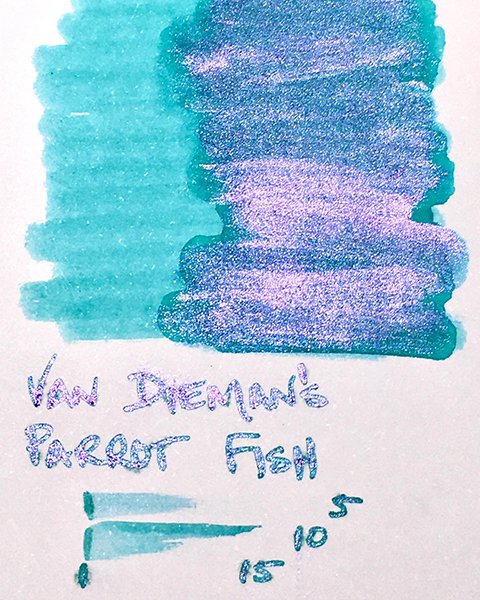 VAN DIEMAN'S
PARROT FISH
5
10
15